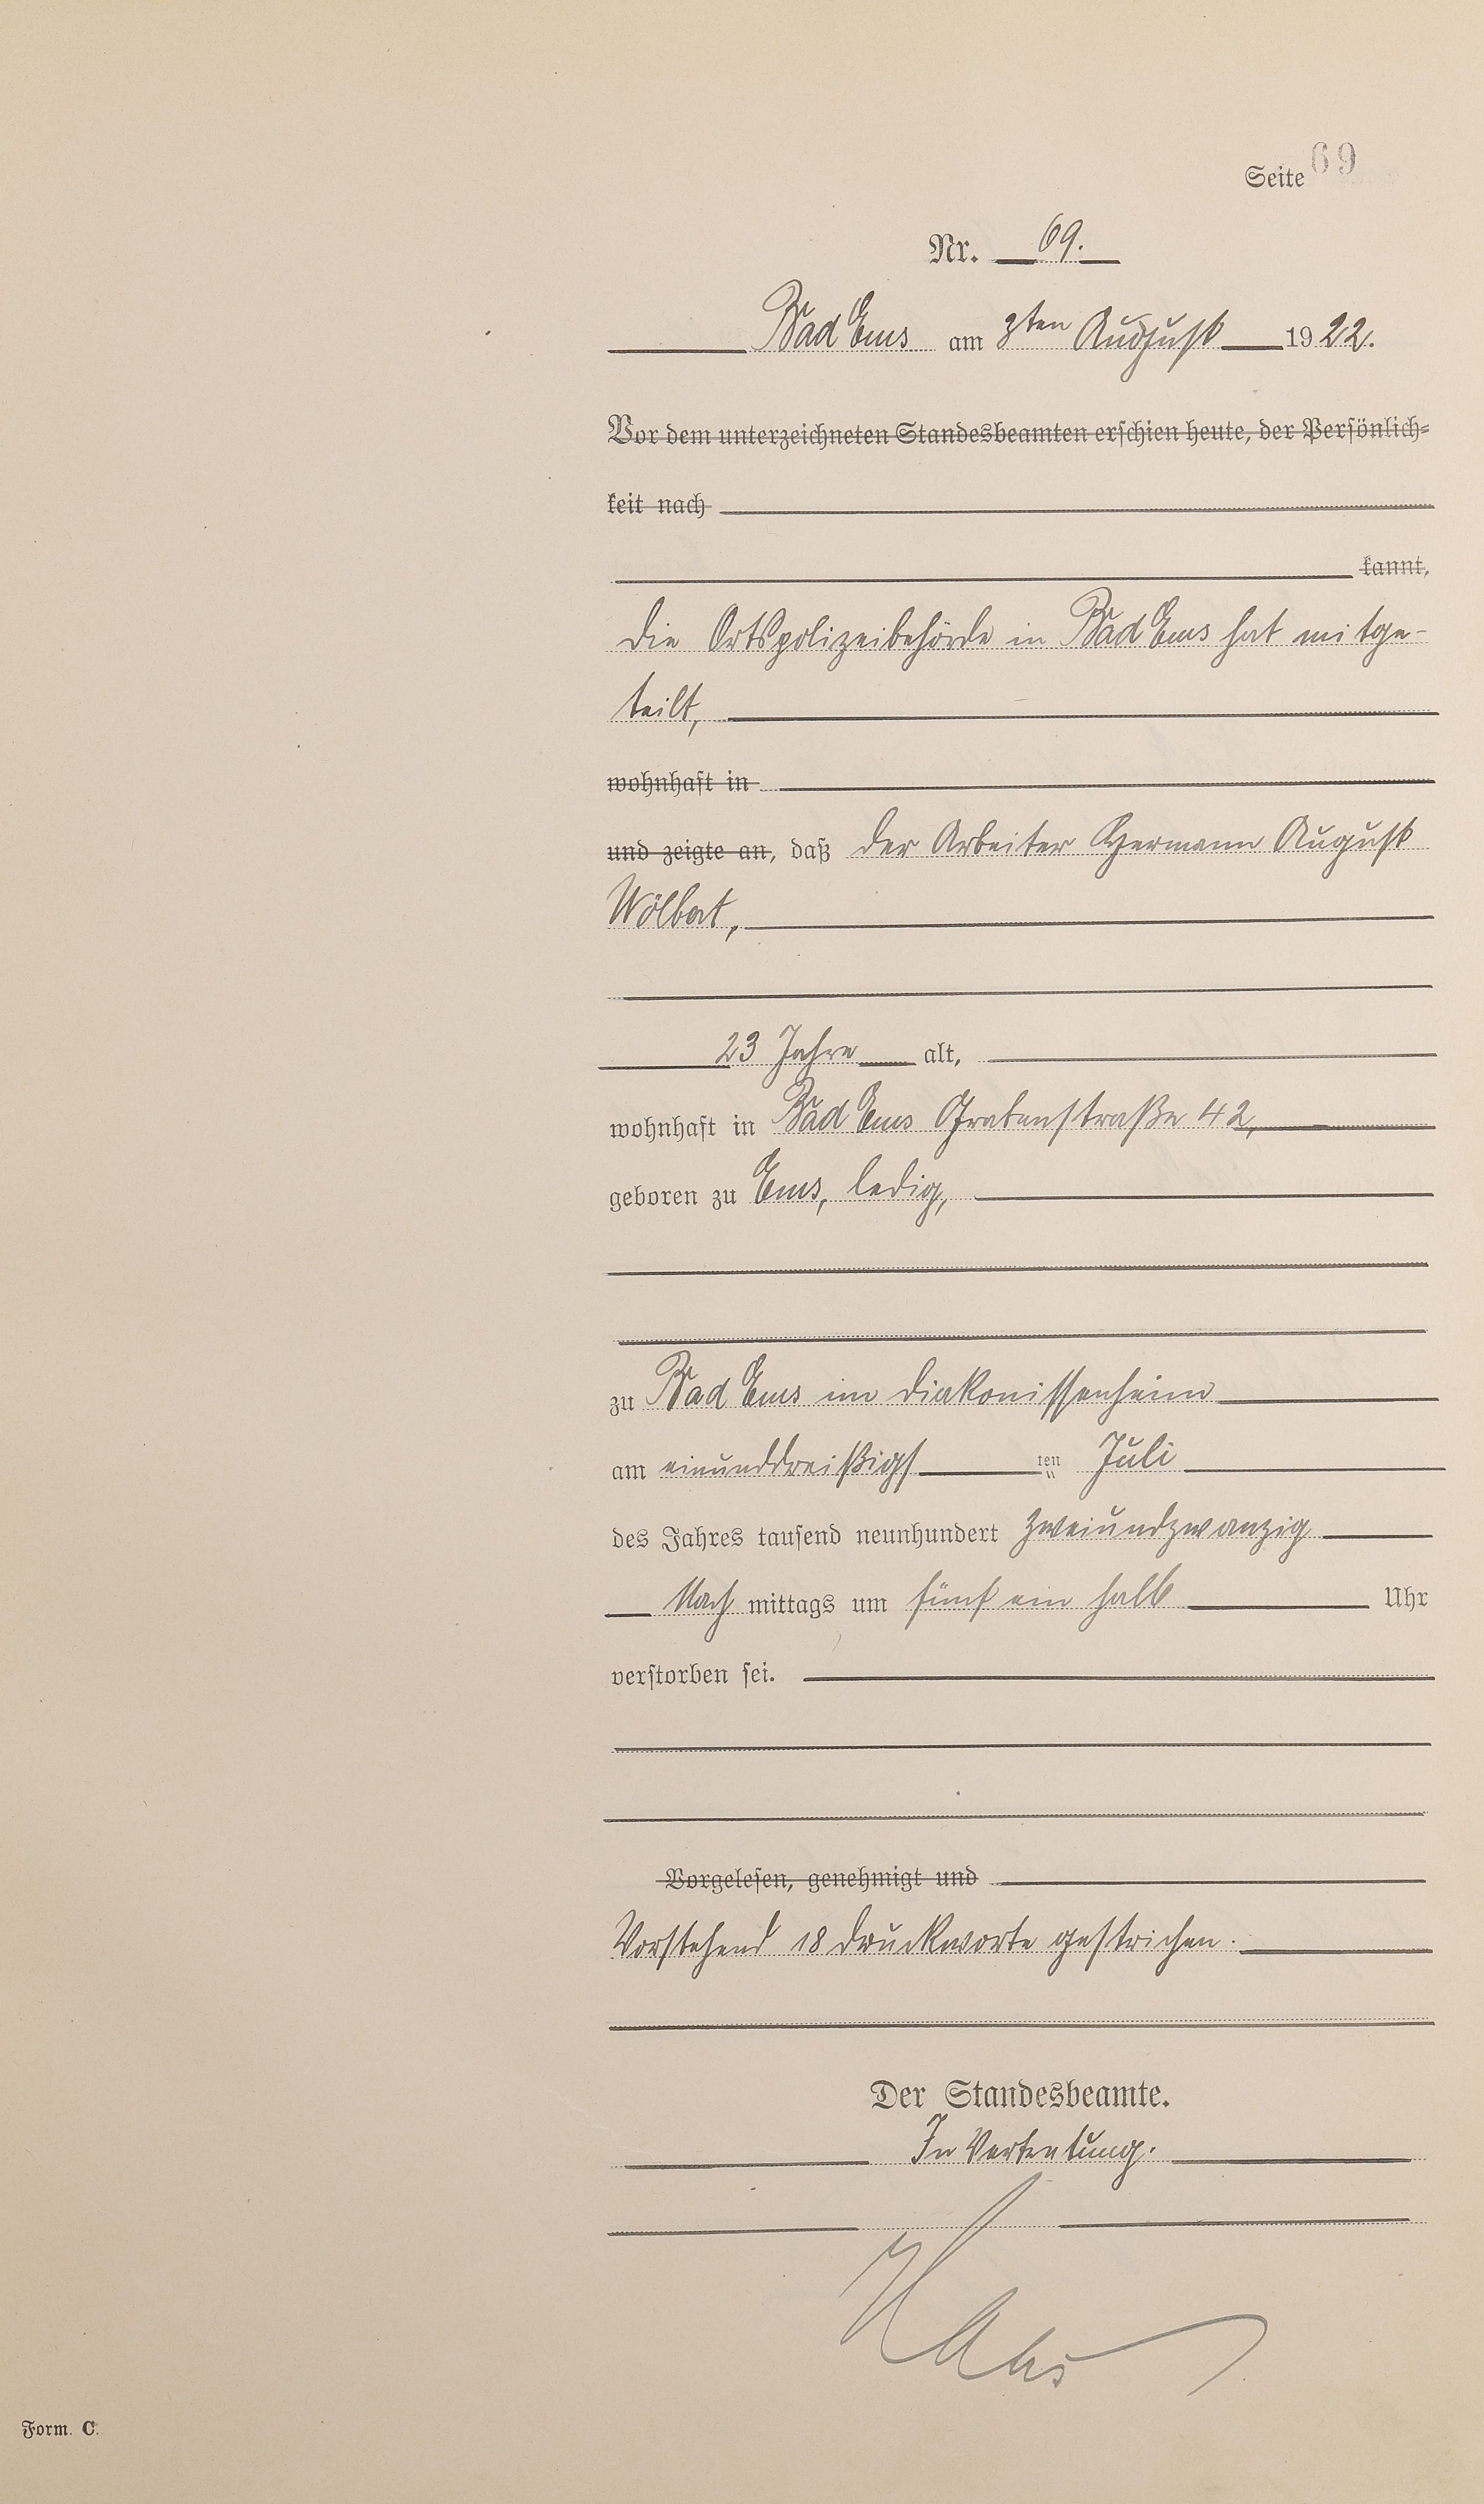 Seite 69
Nr. 69.
Bad Ems am 3ten August 1922.
Vor dem unterzeichneten Standesbeamten erschien heute, der Persönlich-
keit nach
kannt,
die Ortspolizeibehörde in Bad Ems hat mitge-
teilt,
wohnhaft in
und zeigte an, daß der Arbeiter Hermann August
Wölbert,
23 Jahre alt,
wohnhaft in Bad Ems Grabenstraße 42,
geboren zu Ems, ledig,
zu Bad Ems im Diakonissenheim
am einunddreißigs ten Juli
des Jahres tausend neunhundert zweiundzwanzig
Nach mittags um fünf ein halb Uhr
verstorben sei.
Vorgelesen, genehmigt und
Vorstehend 18 Druckworte gestrichen.
Der Standesbeamte.
In Vertretung.
Form. C.